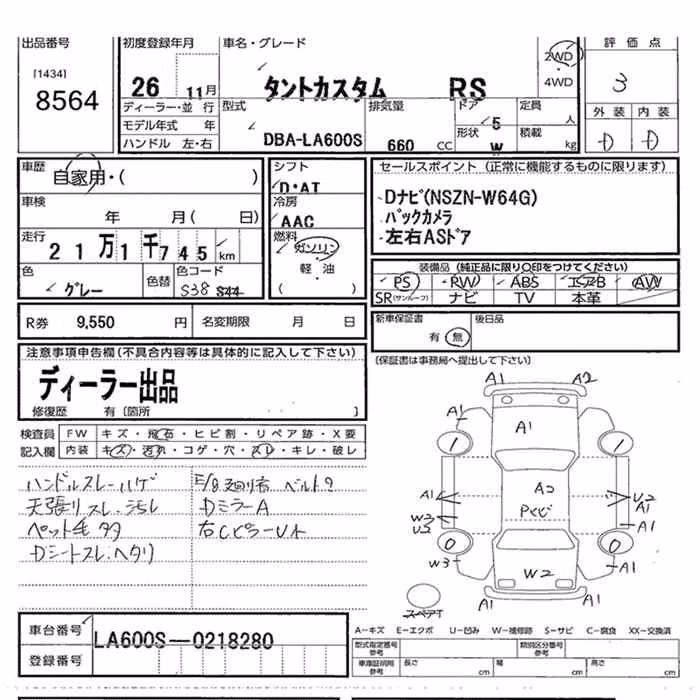 出品番号
[1434]
8564
初度登録年月
26 11月
ディーラー・並 行
モデル年式 年
ハンドル 左・右
車名・グレード
タントカスタム RS
2WD
・
4WD
型式
DBA-LA600S
排気量
660 CC
ドア
5
形状
W
定員
人
積載
kg
評価点
3
外装 内装
D D
車歴
自家用・( )
車検
年 月( 日)
走行
21万1千745 km
色
グレー
色替
色コード
S38 S44
シフト
D・AT
冷房
AAC
燃料
ガソリン
・
軽・油
( )
セールスポイント (正常に機能するものに限ります)
-Dナビ(NSZN-W64G)
-バックカメラ
-左右ASドア
装備品 (純正品に限り○印をつけてください)
PS RW ABS エアB AW
SR(サンルーフ) ナビ TV 本革
R券 9,550 円 名変期限 月 日
新車保証書
有・無
後日品
(保証書は事務局へ提出して下さい)
注意事項申告欄(不具合内容等は具体的に記入して下さい)
ディーラー出品
修復歴 有 [箇所 ]
検査員
記入欄
FW キズ・飛石・ヒビ割・リペア跡・X要
内装 キズ・汚れ・コゲ・穴・スレ・キレ・破レ
ハンドルスレーハゲ
天張りスレ、汚れ
ペット毛タタ
Dシートスレ、ヘタリ
ベルト?
DミラーA
右CピラーU小
A1 A2
A1
A1 A1
1 1
A1 A2 U2
Pくビ A1
W3
U2 A1
0 0
W3 W2 A1
A1 A1
スペアT
A-キズ E-エクボ U-凹み W-補修跡 S-サビ C-腐食 XX-交換済
車台番号
LA600S-0218280
登録番号
型式指定番号
参考
類別区分番号
参考
車庫証明用
参考
長さ cm
幅 cm
高さ cm